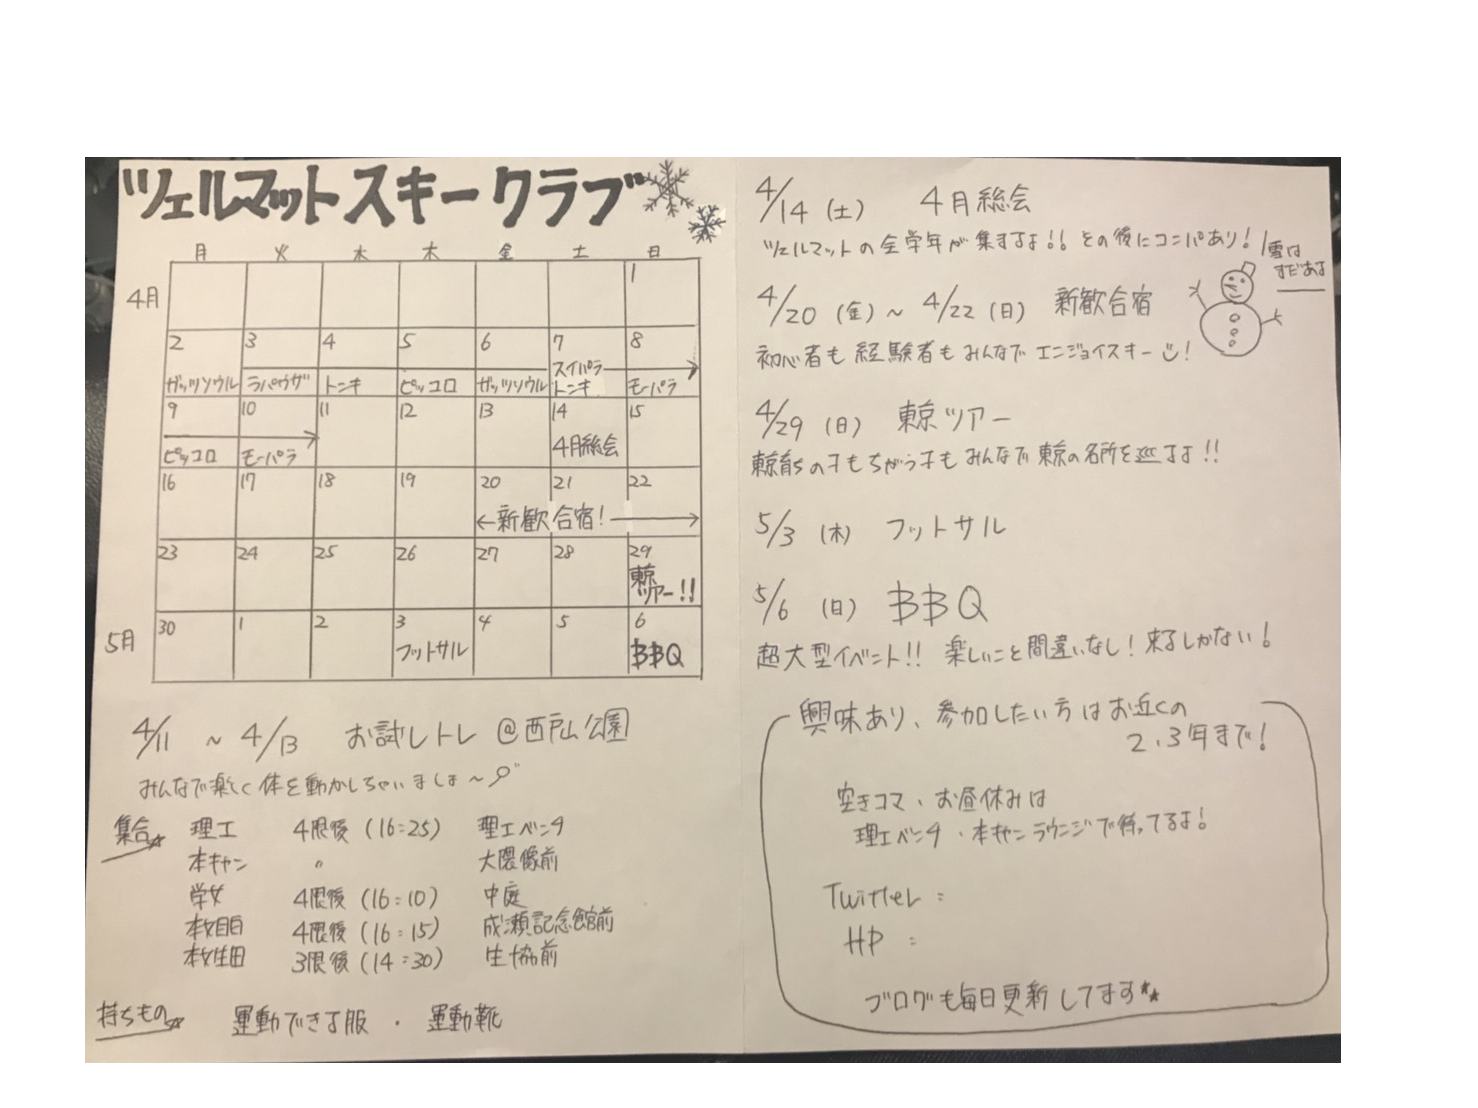 ツェルマットスキークラブ
月 火 水 木 金 土 日
4月
1
2 3 4 5 6 7 8
スイパラ
ガッツソウル ラパウザ トンキ ピッコロ ガッツソウル トンキ モーパラ
9 10 11 12 13 14 15
ピッコロ モーパラ 4月総会
16 17 18 19 20 21 22
←新歓合宿!→
23 24 25 26 27 28 29
東京
ツアー!!
5月
30 1 2 3 4 5 6
フットサル BBQ
4/11 ~ 4/13 お試しトレ @西戸山公園
みんなで楽しく体を動かしちゃいましょ~
集合☆ 理工 4限後(16:25) 理工ベンチ
本キャン 〃 大隈像前
学女 4限後(16:10) 中庭
本女目白 4限後(16:15) 成瀬記念館前
本女生田 3限後(14:30) 生協前
持ちもの☆ 運動できる服 ・ 運動靴
4/14 (土) 4月総会
ツェルマットの全学年が集まるよ!! その後にコンパあり!
雪は
まだあるよ
4/20 (金) ~ 4/22 (日) 新歓合宿
初心者も経験者もみんなでエンジョイスキー!
4/29 (日) 東京ツアー
東京育ちの子もちがう子もみんなで東京の名所を巡るよ!!
5/3 (木) フットサル
5/6 (日) BBQ
超大型イベント!! 楽しいこと間違いなし! 来るしかない!
興味あり、参加したい方はお近くの
2、3年まで!
空きコマ、お昼休みは
理工ベンチ、本キャンラウンジで待ってるよ!
Twitter:
HP:
ブログも毎日更新してます☆☆